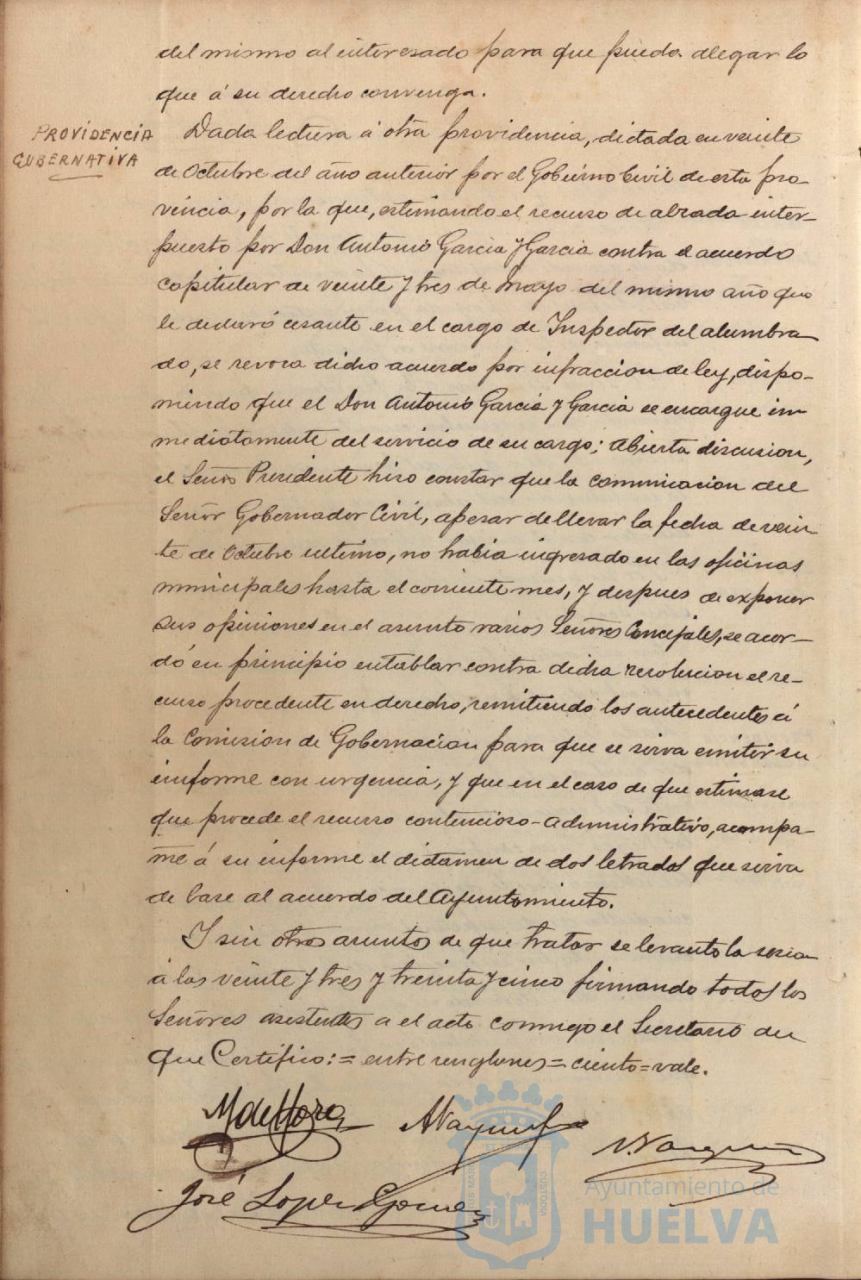 del mismo al interesado para que pueda alegar lo
que á su derecho convenga.
PROVIDENCIA
GUBERNATIVA
Dada lectura á otra providencia, dictada en veinte
de Octubre del año anterior por el Gobierno Civil de esta pro-
vincia, por la que, estimando el recurso de alzada inter-
puesto por Don Antonio Garcia y Garcia contra el acuerdo
capitular de veinte y tres de Mayo del mismo año que
le declaró cesante en el cargo de Inspector del alumbra
do, se revoca dicho acuerdo por infraccion de ley, dispo-
niendo que el Don Antonio Garcia y Garcia se encargue in
mediatamente del servicio de su cargo; abierta discusion,
el Señor Presidente hizo constar que la comunicacion del
Señor Gobernador Civil, apesar de llevar la fecha de vein
te de Octubre ultimo, no habia ingresado en las oficinas
municipales hasta el corriente mes, y despues de exponer
sus opiniones en el asunto varios Señores Concejales, se acor-
dó en principio entablar contra dicha resolucion el re-
curso procedente en derecho, remitiendo los antecedentes á
la Comision de Gobernacion para que se sirva emitir su
informe con urgencia, y que en el caso de que estimase
que procede el recurso contencioso-administrativo, acompa-
ñe á su informe el dictamen de dos letrados que sirva
de base al acuerdo del Ayuntamiento.
Y sin otros asuntos de que tratar se levanto la sesion
á las veinte y tres y treinta y cinco firmando todos los
Señores asistentes a el acto conmigo el Secretario de
que Certifico: = entre renglones = ciento = vale.
M de Mora
José Lopez Gomez
Ayuntamiento de
HUELVA